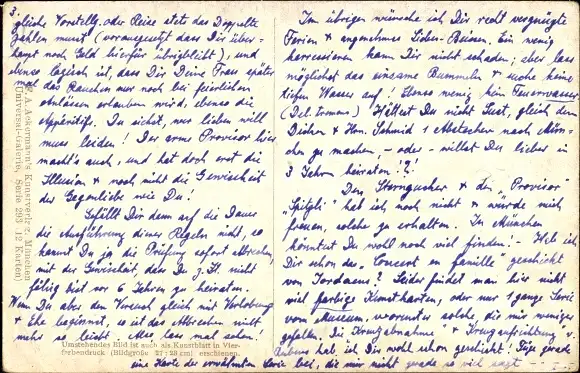 3.
gleiche Vorstellg. oder Reise stets das Doppelte
zahlen musst (vorausgesetzt dass Dir über-
haupt noch Geld hierfür übrigbleibt), und
ebenso logisch ist, dass Dir Deine Frau später
mal das Rauchen nur noch bei feierlichen
Anlässen erlauben wird, ebenso die
Appéritifs. Du siehst, wer lieben will
muss leiden! Der arme Provisor hier
macht's auch, und hat doch erst die
Illusion & noch nicht die Gewissheit
der Gegenliebe wie Du!
Gefällt Dir denn auf die Dauer
die Ausführung dieser Regeln nicht, so
kannst Du ja die Prüfung sofort abbrechen,
mit der Gewissheit, dass Du z. Zt. nicht
fähig bist vor 6 Jahren zu heiraten.
Wenn Du aber den Versuch gleich mit Verlobung
& Ehe beginnst, so ist das Abbrechen nicht
mehr so leicht. Also lass mal sehen!
F. A. Ackermann's Kunstverlag, München
Universal-Galerie, Serie 293 (12 Karten)
Umstehendes Bild ist auch als Kunstblatt in Vier-
farbendruck (Bildgröße 27:28 cm) erschienen.
Im übrigen wünsche ich Dir recht vergnügte
Ferien & angenehmes Reisen. Ein wenig
kann Dir nicht schaden; aber lass
möglichst das einsame Bummeln & suche keine
tiefen Wasser auf! Ebenso wenig kein Feuerwasser!
Hättest Du nicht Lust, gleich den
& Hrn. Schmid 1 Abstecher nach Mün-
chen zu machen - oder - willst Du lieber in
3 Jahren heiraten!?!
Den Sterngucker & den „Provisor"
hab ich noch nicht & würde mich
freuen solche zu erhalten. In München
könntest Du wohl noch viel finden! - Hab ich
Dir schon das „Concert en famille" geschickt
von Jordaens? Leider findet man hier nicht
viel farbige Kunstkarten, oder nur 1 ganze Serie
vom Museum, worunter solche, die mir weniger
gefallen. Die Kreuzabnahme" & Kreuzaufrichtung v.
Rubens hab ich Dir wohl schon geschickt! Füge gerade
eine Karte der erwähnten Serie bei, die mir nicht gerade so viel sagt